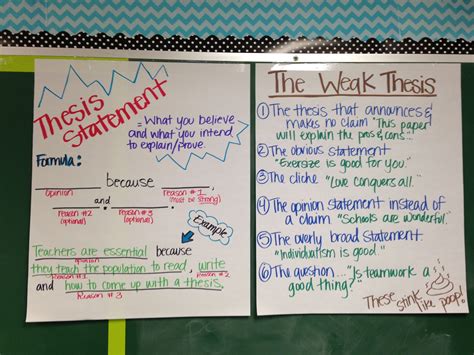 Thesis
Statement
= What you believe
and what you intend
to explain/prove.
Formula:
because
opinion
reason #1
(must be strong)
and
reason #2
(optional)
reason #3
(optional)
Example
Teachers are essential because
opinion
they teach the population to read, write
reason #1
reason #2
and how to come up with a thesis.
Reason #3
The Weak Thesis
① The thesis that announces &
makes no claim "This paper
will explain the pros & cons..."
② The obvious statement
"Exersize is good for you."
③ The cliche "Love conquers all."
④ The opinion statement instead of
a claim. "Schools are wonderful."
⑤ The overly broad statement
"Individualism is good."
⑥ The question... "Is teamwork a
good thing?"
These stink like poop!